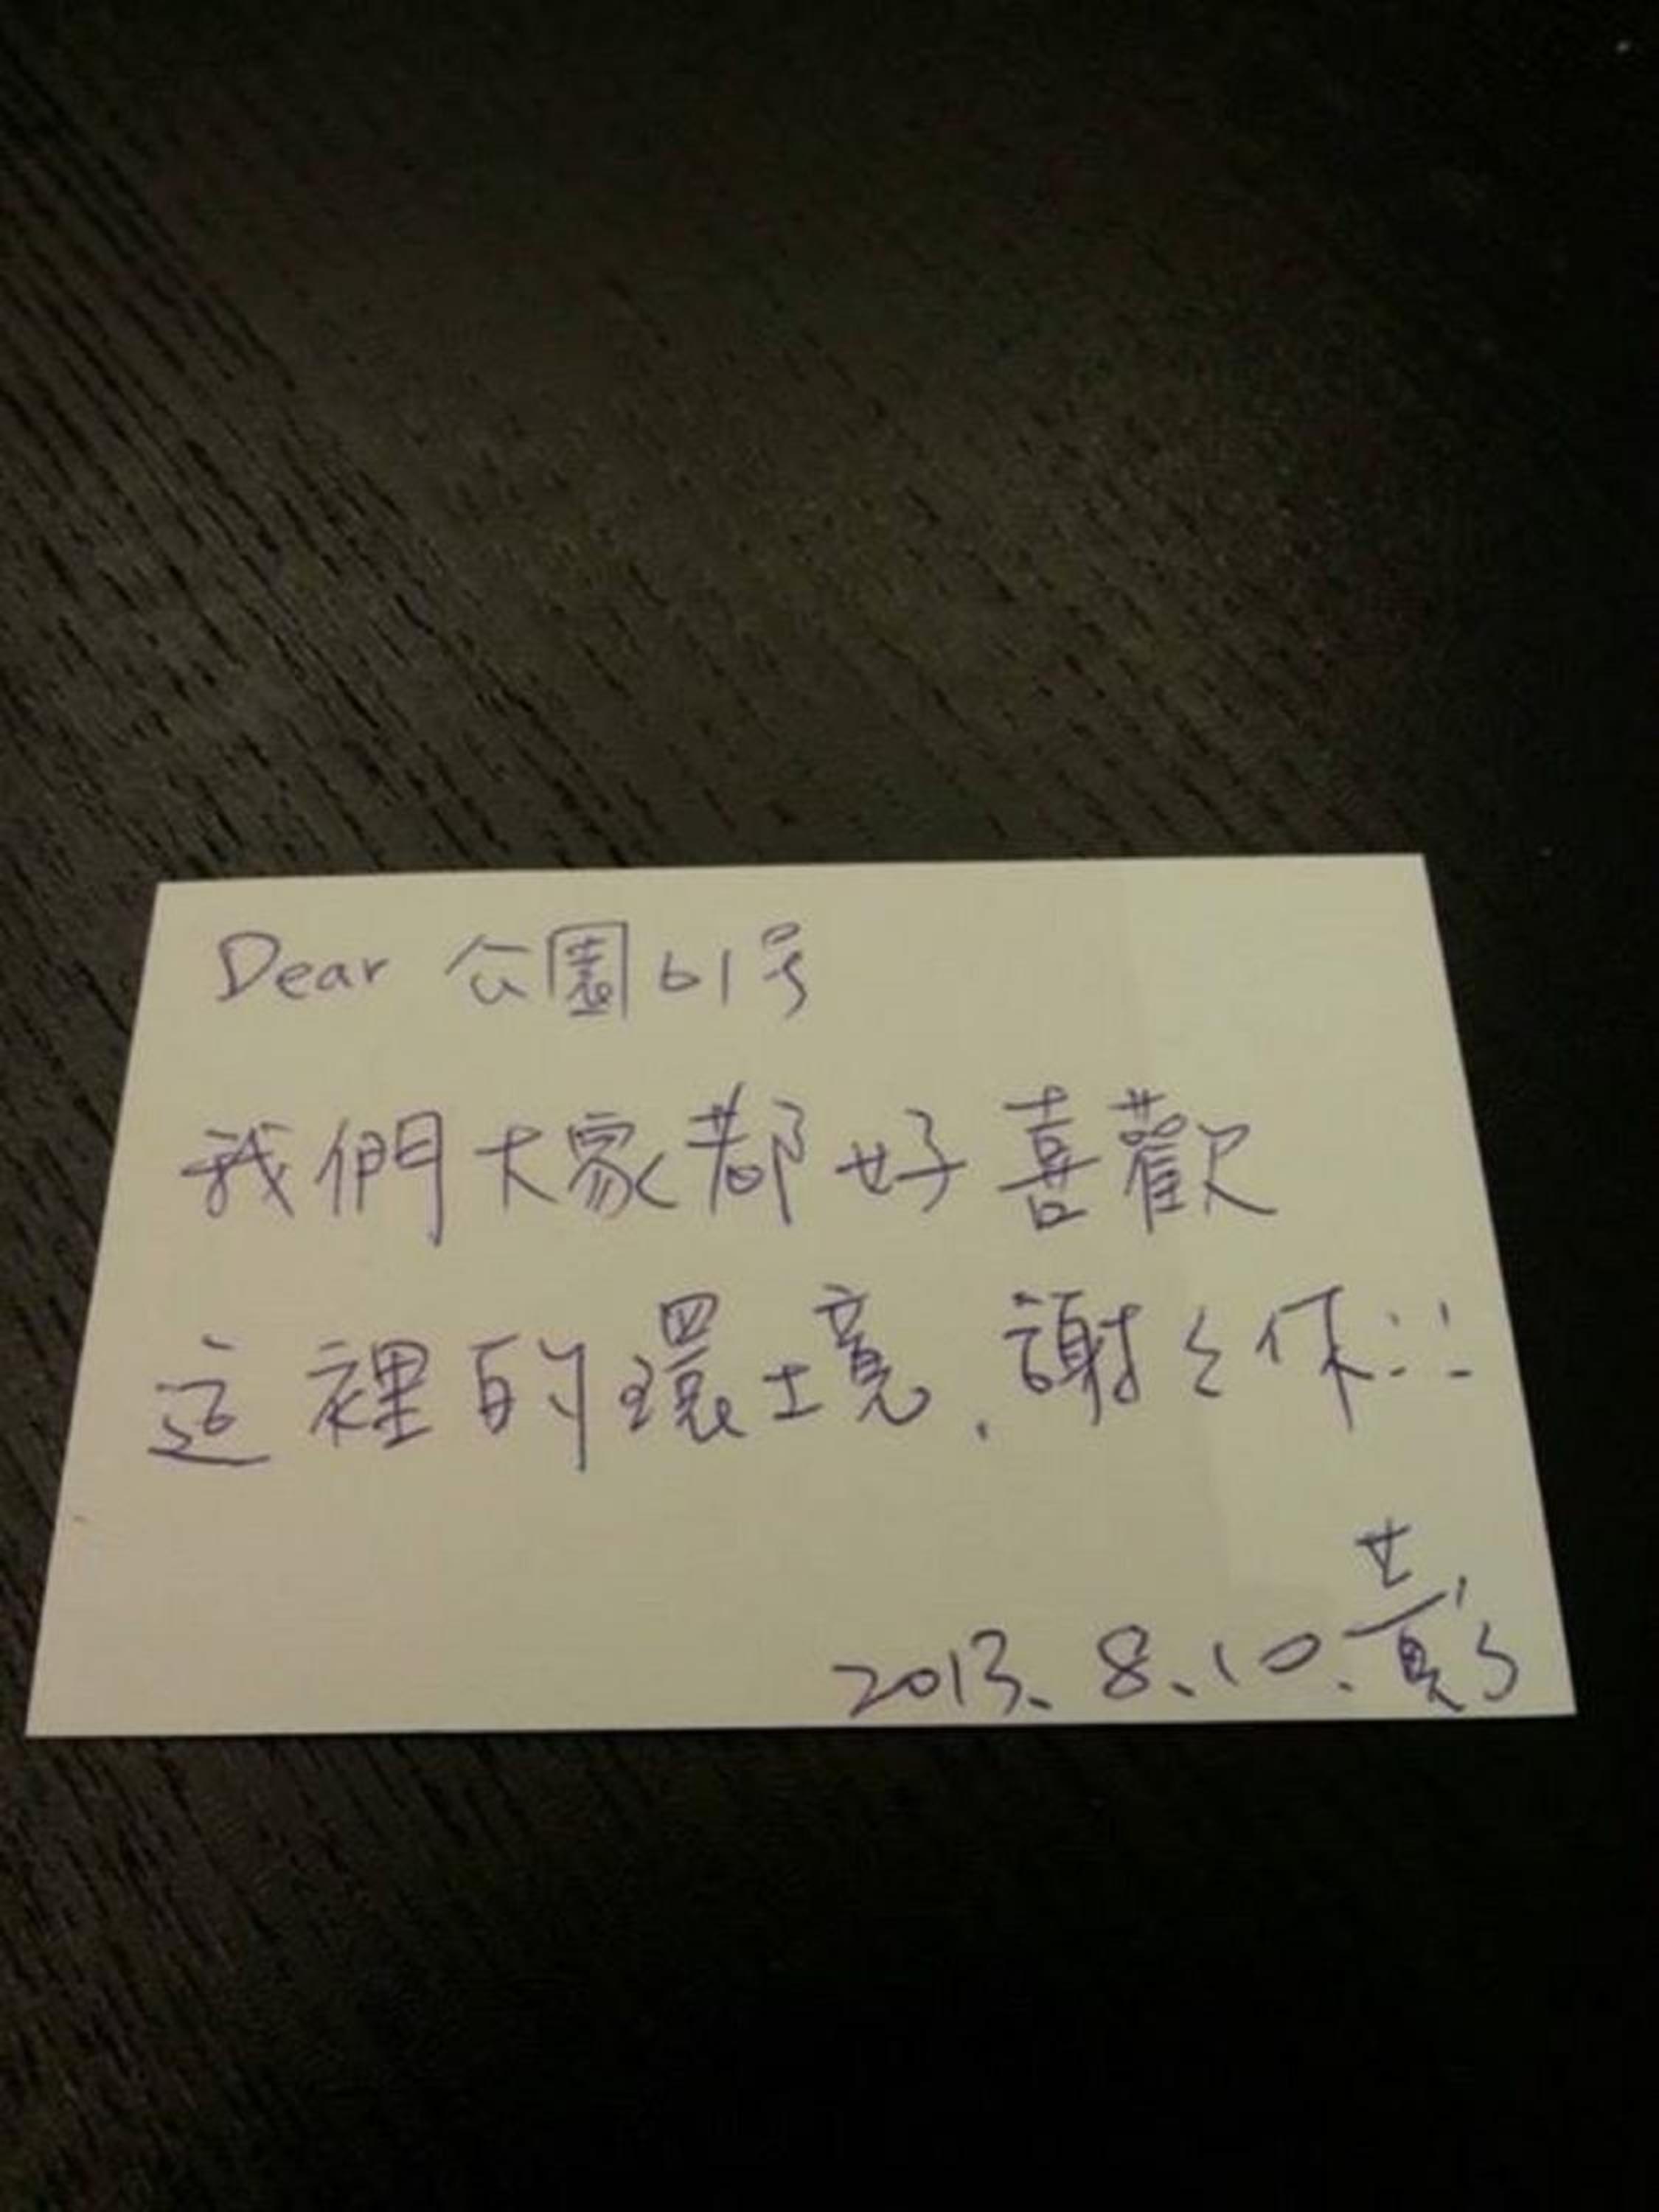 Dear 公園61号
我們大家都好喜歡
這裡的環境、謝々你!!
2013.8.10.黃's